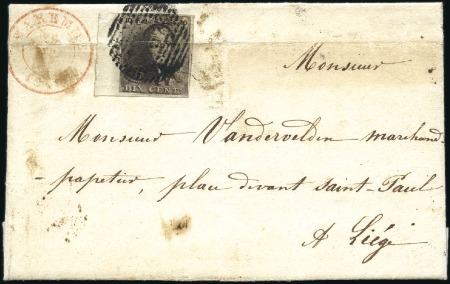 DIX CENT.
Monsieur
Monsieur Vandervelden marchand-
papetier, place devant Saint-Paul
A Liége